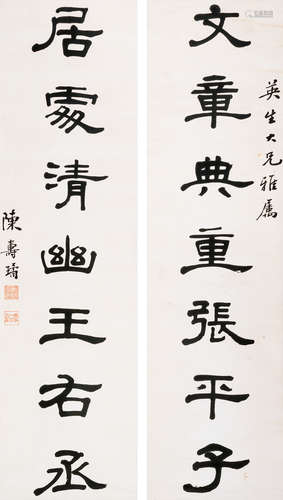 英生大兄雅屬
文章典重張平子
居處清幽王右丞
陳壽